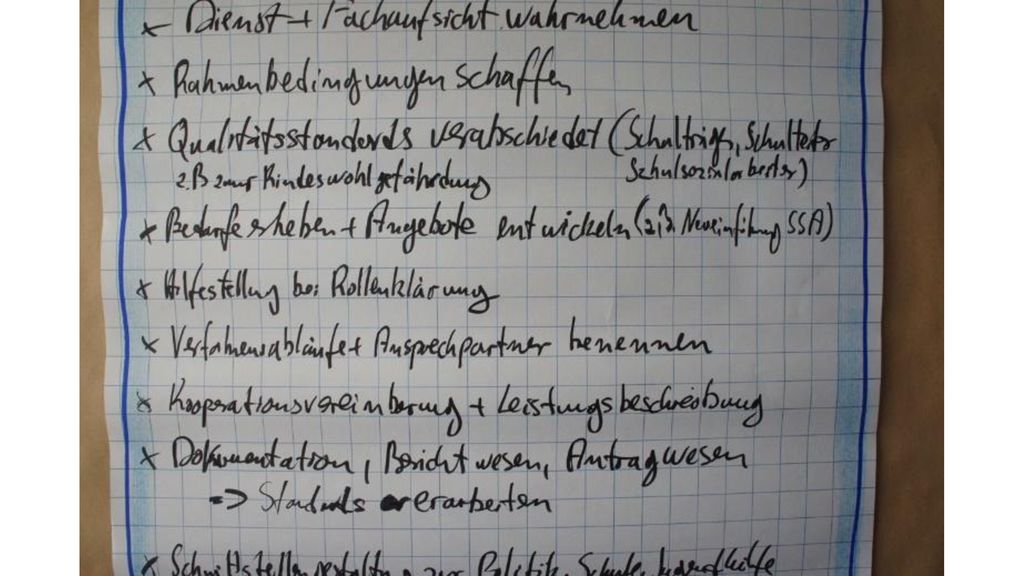 × Dienst + Fachaufsicht wahrnehmen
× Rahmenbedingungen schaffen
× Qualitätsstandards verabschiedet (Schulträger, Schulleiter
z.B zur Kindeswohlgefährdung Schulsozialarbeiter)
× Bedarfe erheben + Angebote entwickeln (z.B. Neueinführung SSA)
× Hilfestellung bei Rollenklärung
× Verfahrensabläufe + Ansprechpartner benennen
× Kooperationsvereinbarung + Leistungsbeschreibung
× Dokumentation, Bericht wesen, Antragwesen
=> Standards erarbeiten
× Schnittstellengestaltung zur Politik, Schule, Jugendhilfe